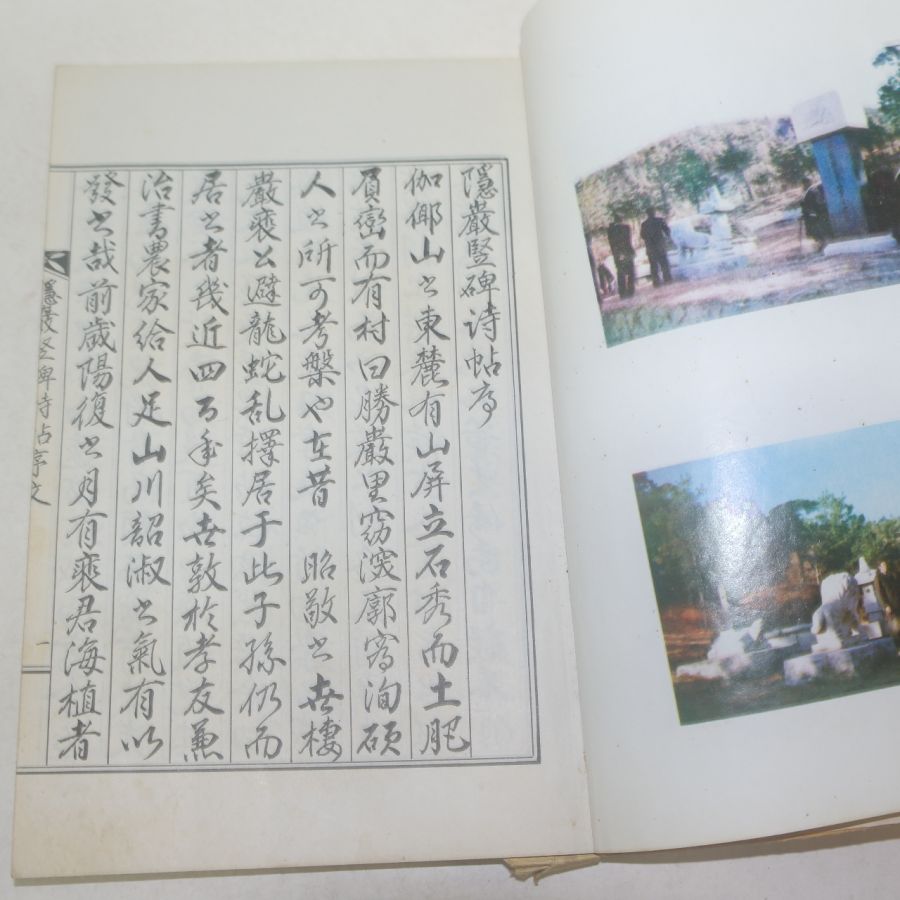 隱巖竪碑詩帖序
伽倻山之東麓有山屏立石秀而土肥
負巒而有村曰勝巖里窈窕廓窩洵碩
人之所可考槃也在昔 昭敬之世棲
巖裵公避龍蛇乱擇居于此子孫仍而
居之者幾近四百年矣世敦於孝友兼
治書農家給人足山川韶淑之氣有以
發之哉前歲陽復之月有裵君海植者
隱巖竪碑詩帖序文
一